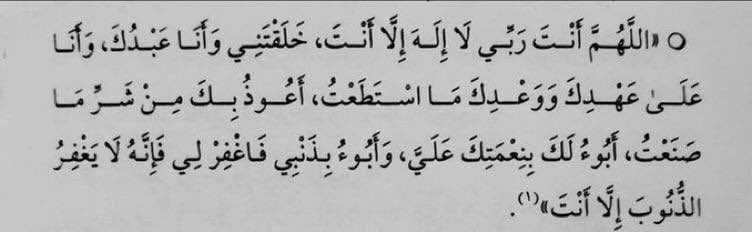 ○ «اللَّهُمَّ أَنْتَ رَبِّي لَا إِلَهَ إِلَّا أَنْتَ، خَلَقْتَنِي وَأَنَا عَبْدُكَ، وَأَنَا
عَلَىٰ عَهْدِكَ وَوَعْدِكَ مَا اسْتَطَعْتُ، أَعُوذُ بِكَ مِنْ شَرِّ مَا
صَنَعْتُ، أَبُوءُ لَكَ بِنِعْمَتِكَ عَلَيَّ، وَأَبُوءُ بِذَنْبِي فَاغْفِرْ لِي فَإِنَّهُ لَا يَغْفِرُ
الذُّنُوبَ إِلَّا أَنْتَ»(١).